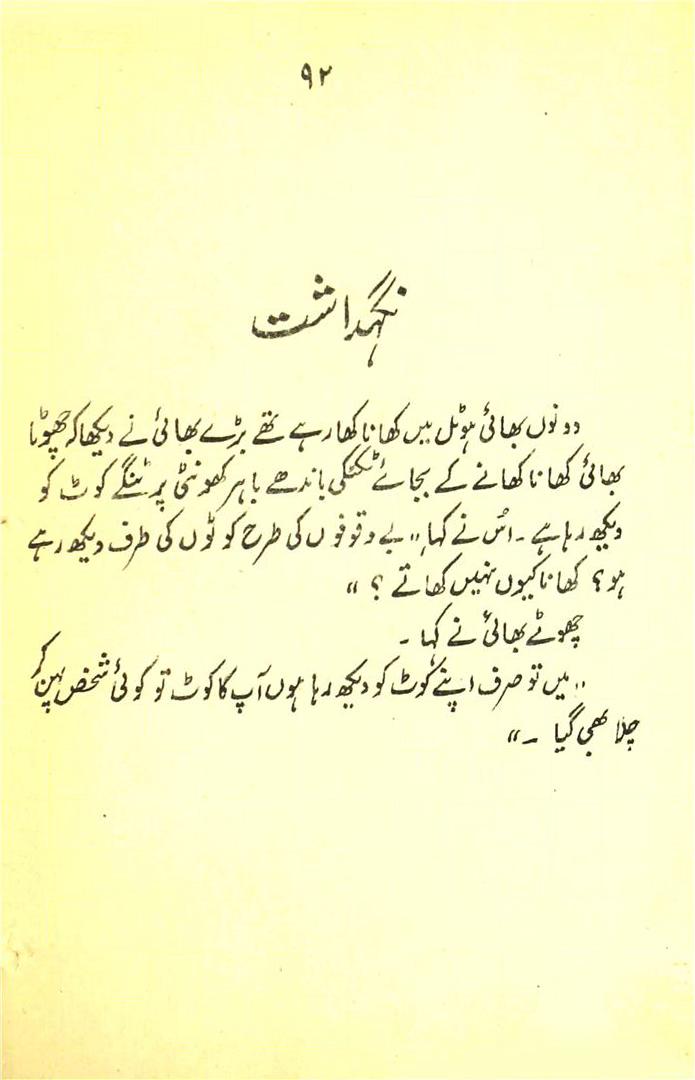 ۹۲
نگہداشت
دونوں بھائی ہوٹل میں کھانا کھا رہے تھے بڑے بھائی نے دیکھا کہ چھوٹا
بھائی کھانا کھانے کے بجائے ٹکٹکی باندھے باہر کھونٹی پر ٹنگے کوٹ کو
دیکھ رہا ہے ۔ اُس نے کہا ,, بے وقوفوں کی طرح کوٹوں کی طرف دیکھ رہے
ہو ؟ کھانا کیوں نہیں کھاتے ؟ ،،
چھوٹے بھائی نے کہا ۔
,, میں تو صرف اپنے کوٹ کو دیکھ رہا ہوں آپ کا کوٹ تو کوئی شخص پہن کر
چلا بھی گیا ۔ ،،